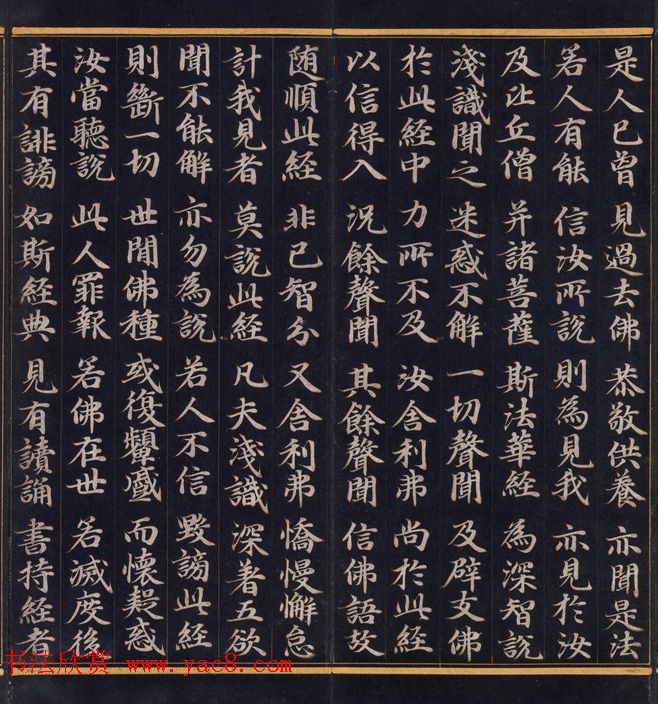 是人已曾見過去佛恭敬供養亦聞是法
若人有能信汝所說則為見我亦見於汝
及比丘僧并諸菩薩斯法華經為深智說
淺識聞之迷惑不解一切聲聞及辟支佛
於此經中力所不及汝舍利弗尚於此經
以信得入況餘聲聞其餘聲聞信佛語故
随順此經非己智分又舍利弗憍慢懈怠
計我見者莫說此經凡夫淺識深著五欲
聞不能解亦勿為說若人不信毀謗此經
則斷一切世間佛種或復顰蹙而懷疑惑
汝當聽說此人罪報若佛在世若滅度後
其有誹謗如斯經典見有讀誦書持經者
书法欣赏 www.yac8.com